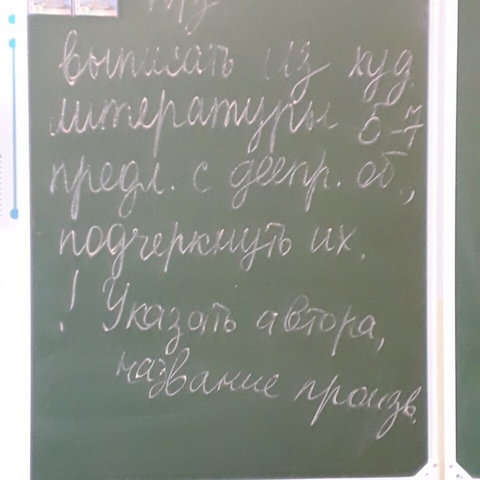 выписать из худ.
литературы 5-7
предл. с деепр. об.,
подчеркнуть их.
! Указать автора,
название произв.